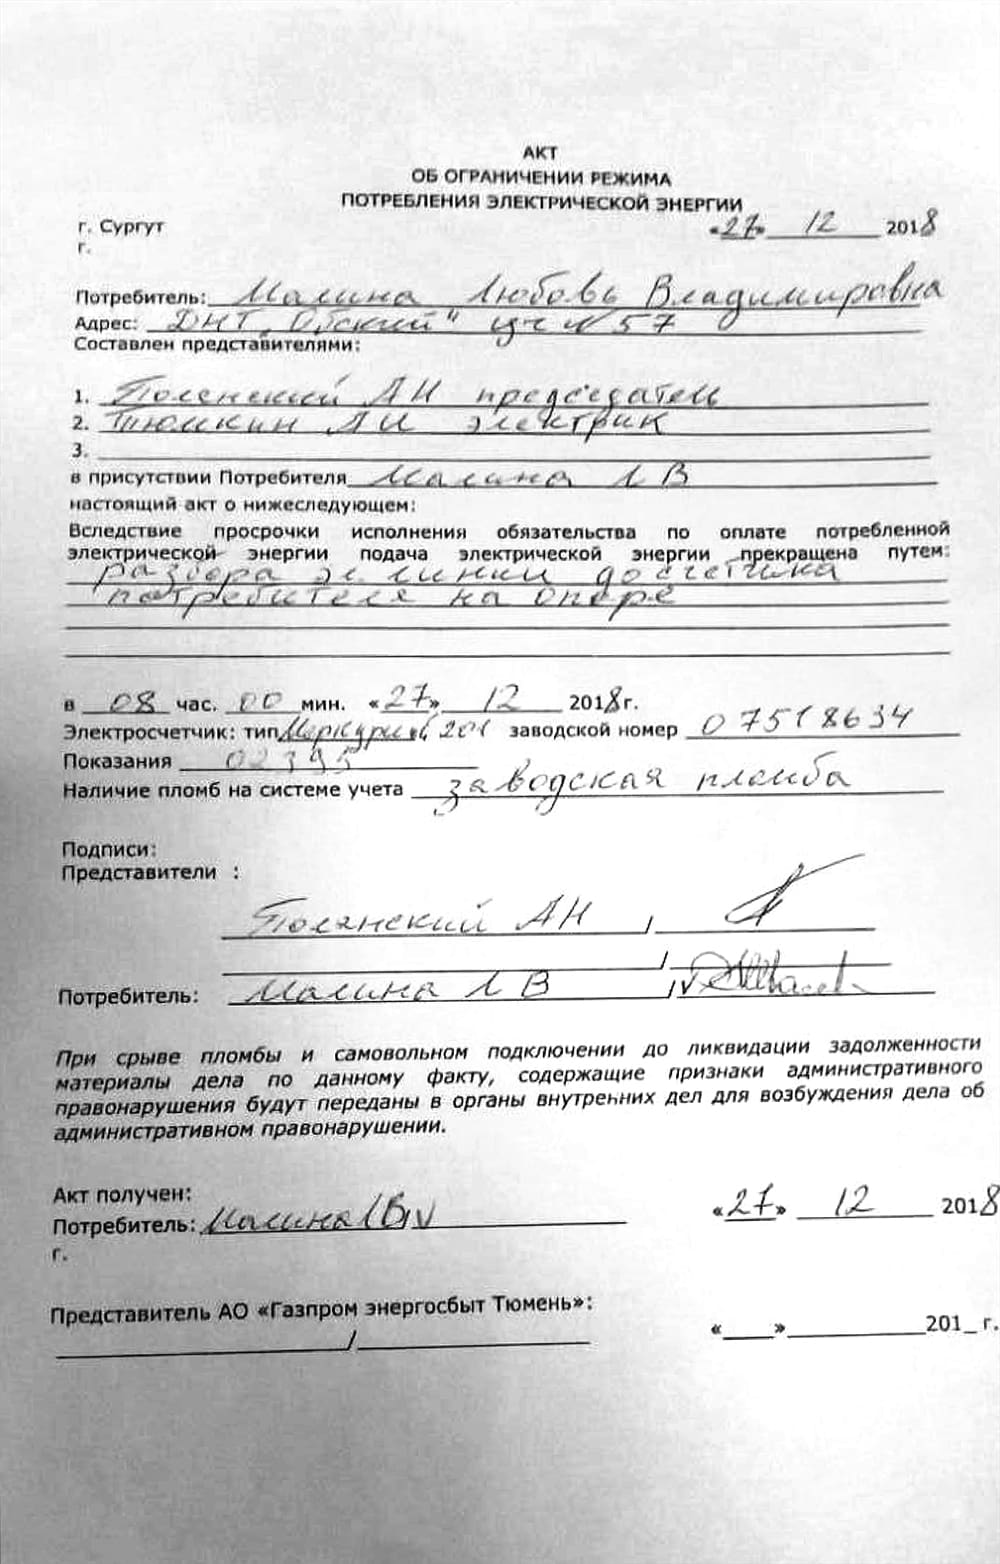 АКТ
ОБ ОГРАНИЧЕНИИ РЕЖИМА
ПОТРЕБЛЕНИЯ ЭЛЕКТРИЧЕСКОЙ ЭНЕРГИИ
г. Сургут «27» 12 2018
г.
Потребитель: Малина Любовь Владимировна
Адрес: ДНТ "Обский" уч N 57
Составлен представителями:
1. Полянский АН председатель
2. Тюмкин АИ электрик
3.
в присутствии Потребителя Малина Л В
настоящий акт о нижеследующем:
Вследствие просрочки исполнения обязательства по оплате потребленной
электрической энергии подача электрической энергии прекращена путем:
разбора эл. линии до счетчика
потребителя на опоре
в 08 час. 00 мин. «27» 12 2018г.
Электросчетчик: тип Меркурий 201 заводской номер 07518634
Показания 02395
Наличие пломб на системе учета заводская пломба
Подписи:
Представители :
Полянский АН /
/
Потребитель: Малина Л В /
При срыве пломбы и самовольном подключении до ликвидации задолженности
материалы дела по данному факту, содержащие признаки административного
правонарушения будут переданы в органы внутренних дел для возбуждения дела об
административном правонарушении.
Акт получен:
Потребитель: Малина ЛВ «27» 12 2018
г.
Представитель АО «Газпром энергосбыт Тюмень»:
/ « » 201_ г.